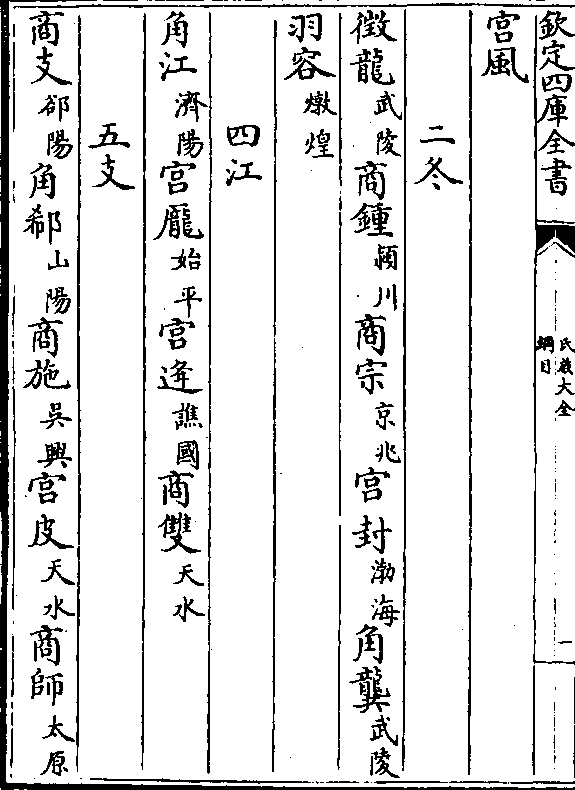 欽定四庫全書
氏族大全
綱目
一
宫風
二冬
徴龍武陵商鍾潁川商宗京兆宫封渤海角龔武陵
羽容燉煌
四江
角江濟陽宫龎始平宫逄譙國商雙天水
五支
商支郃陽角郗山陽商施吳興宫皮天水商師太原